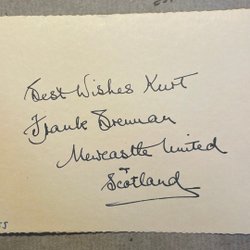 Best Wishes Kurt
Frank Brennan
Newcastle United
+
Scotland